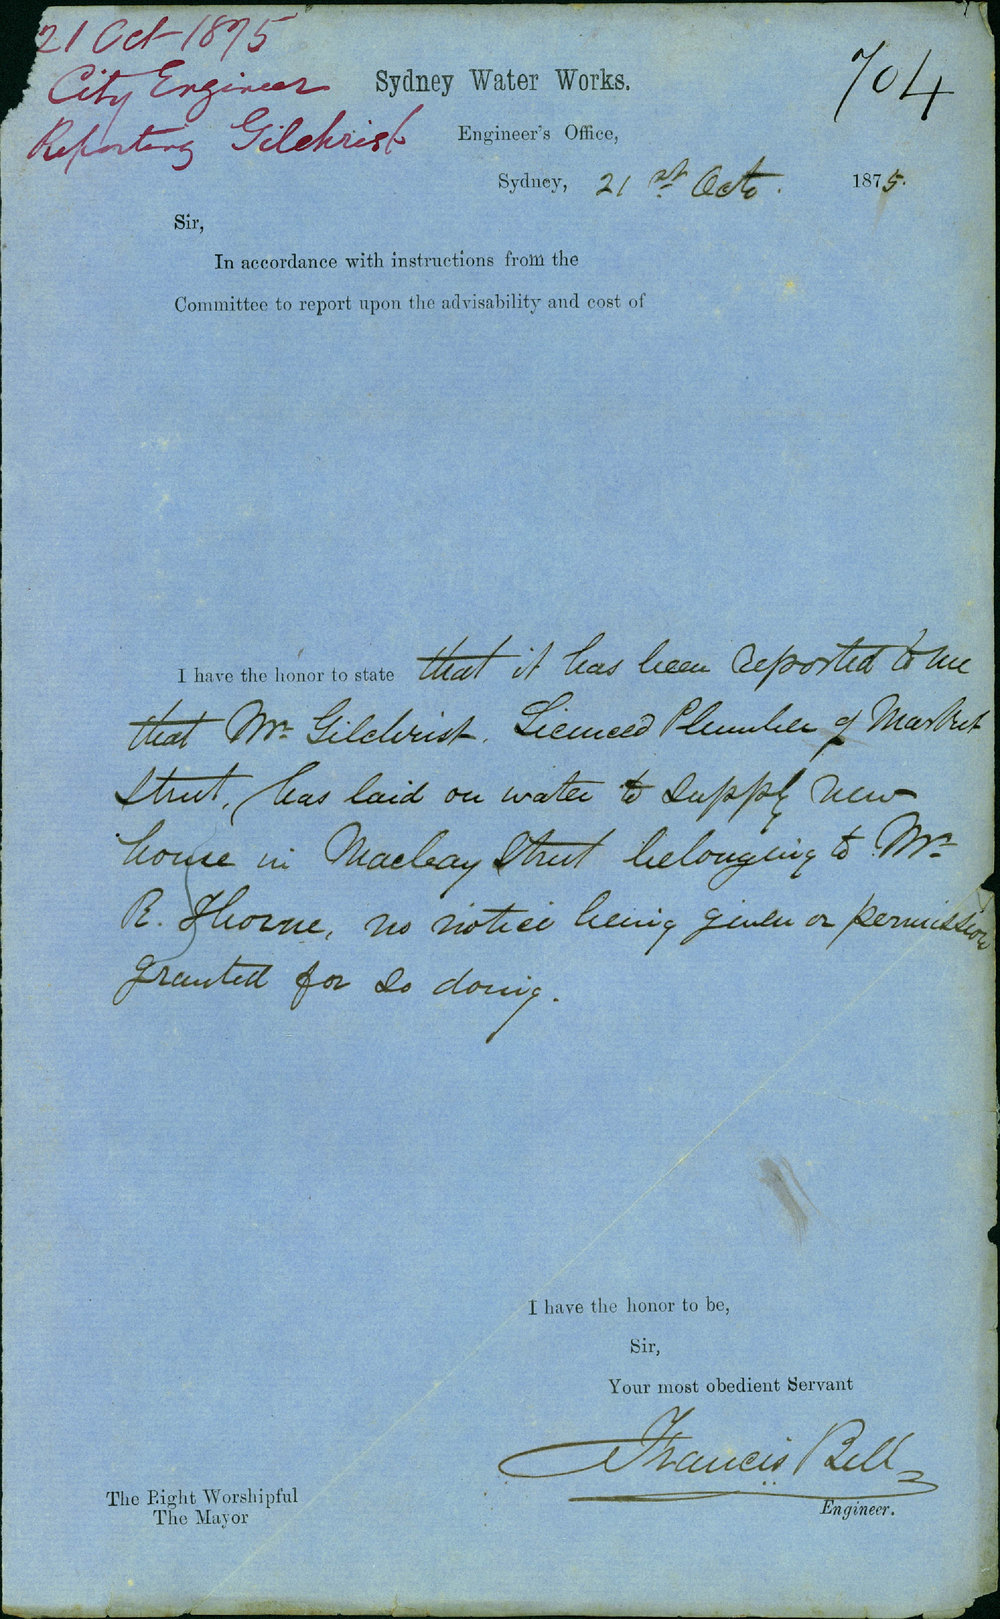 21 Oct 1875
City Engineer
Reporting Gilchrist
704
Sydney Water Works.
Engineer's Office,
Sydney, 21st Octo. 1875.
Sir,
In accordance with instructions from the
Committee to report upon the advisability and cost of
I have the honor to state that it has been reported to me
that Mr. Gilchrist. Licenced Plumber of Market
Street, has laid on water to supply new
house in Macleay Street belonging to Mr.
R. Thorne, no notice being given or permission
granted for so doing.
I have the honor to be,
Sir,
Your most obedient Servant
Francis Bell
Engineer.
The Right Worshipful
The Mayor